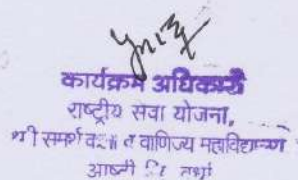 कार्यक्रम अधिकारी
राष्ट्रीय सेवा योजना,
श्री समर्थ व वाणिज्य महाविद्यालय
आष्टी